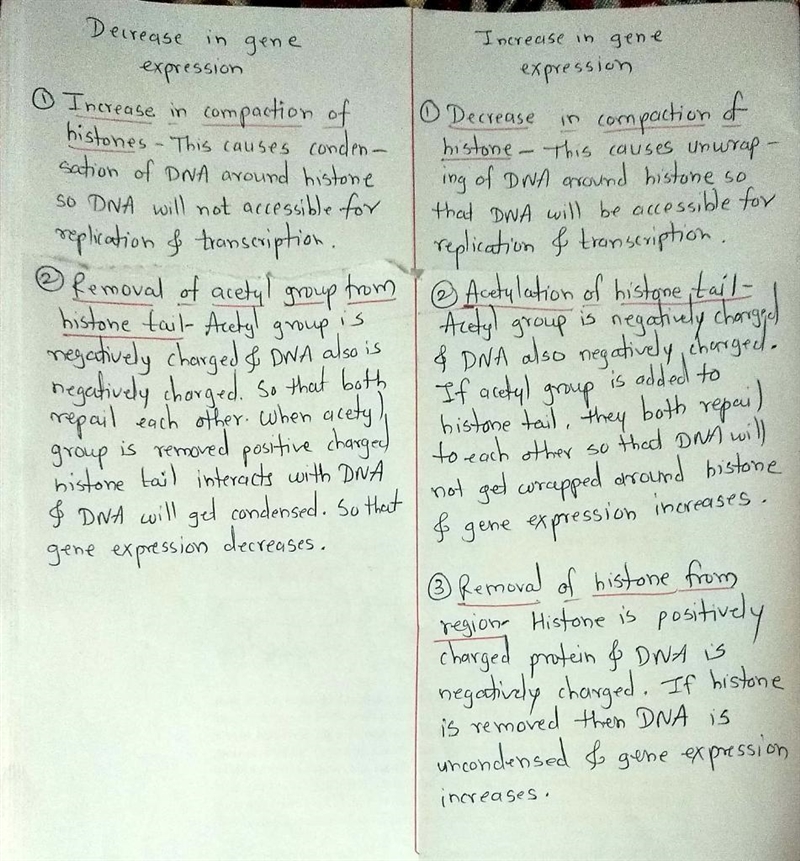 Decrease in gene
expression
① Increase in compaction of
histones - This causes conden-
sation of DNA around histone
so DNA will not accessible for
replication & transcription.
② Removal of acetyl group from
histone tail - Acetyl group is
negatively charged & DNA also is
negatively charged. So that both
repail each other. When acetyl
group is removed positive charged
histone tail interacts with DNA
& DNA will get condensed. So that
gene expression decreases.
Increase in gene
expression
① Decrease in compaction of
histone - This causes unwrap-
ing of DNA around histone so
that DNA will be accessible for
replication & transcription.
② Acetylation of histone tail -
Acetyl group is negatively charged
& DNA also negatively charged.
If acetyl group is added to
histone tail, they both repail
to each other so that DNA will
not get wrapped around histone
& gene expression increases.
③ Removal of histone from
region - Histone is positively
charged protein & DNA is
negatively charged. If histone
is removed then DNA is
uncondensed & gene expression
increases.